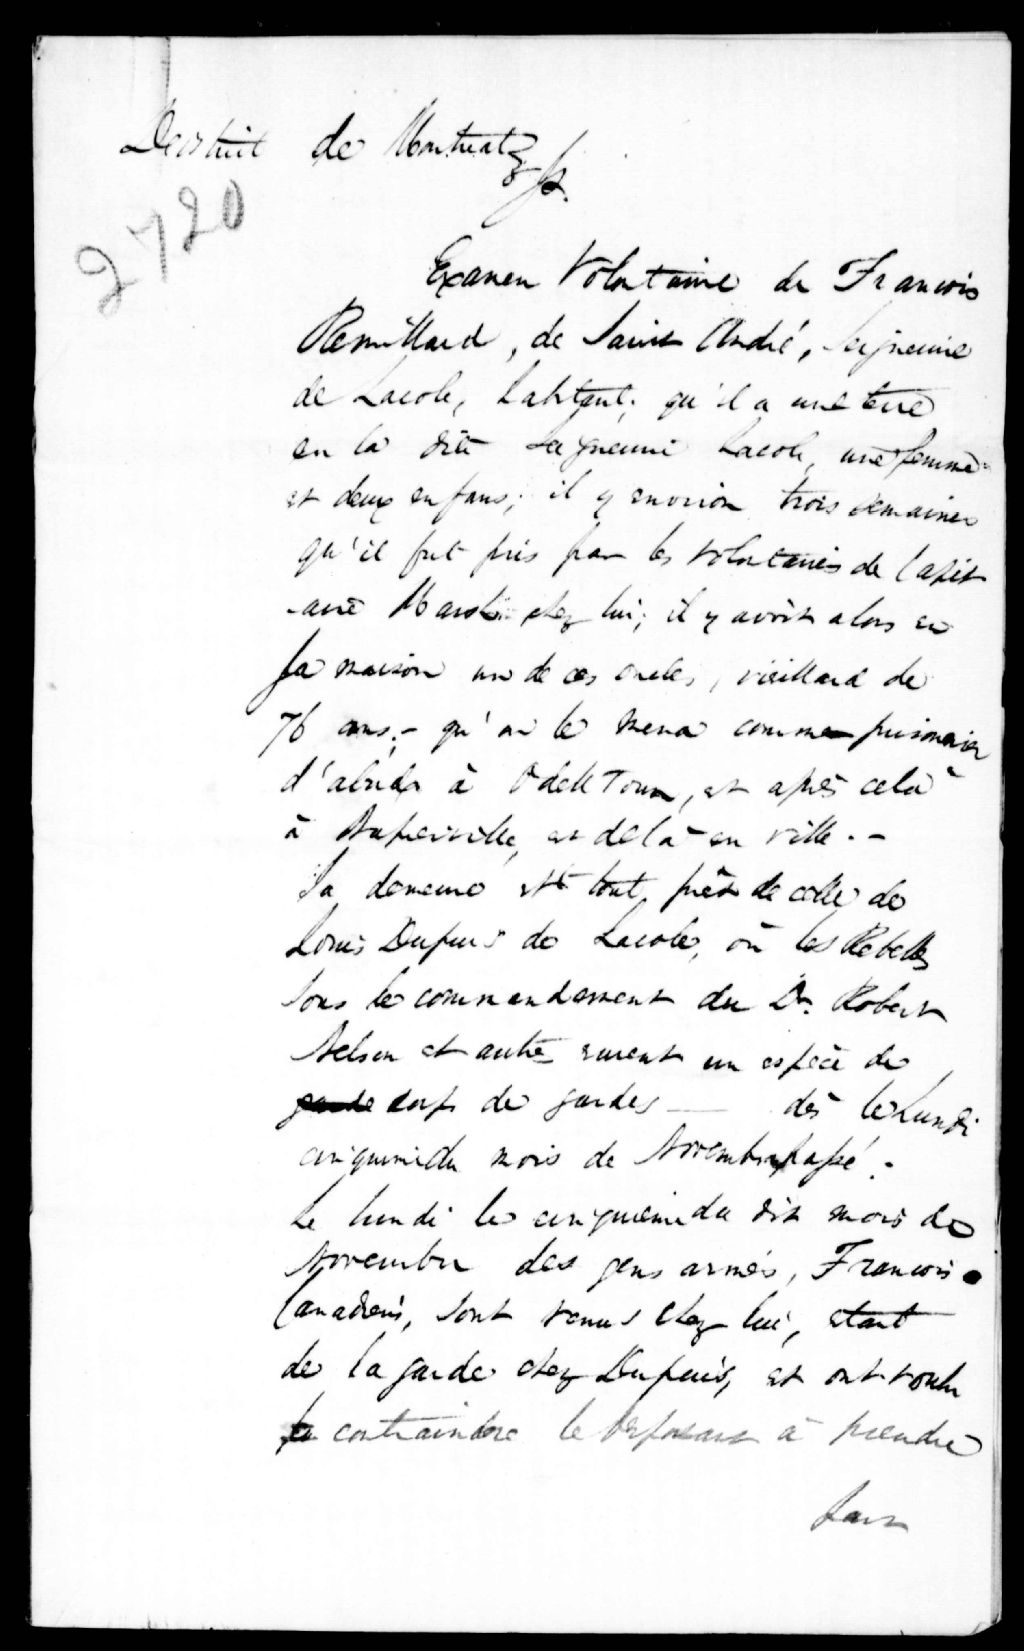 District de Montreal } ss.
2720
Examen Volontaire de Francois
Remillard, de Saint André, Seigneurie
de Lacole, habitant; qu'il a une terre
en la dite Seigneurie Lacole, une femme
et deux enfans; il y environ trois semaines
qu'il fut pris par les volontaires de Capit
-aine chez lui; il y avoit alors en
sa maison un de ces oncles, vieillard de
76 ans;- qu'on le mena comme prisonnier
d'abord à Odelltown, et après celà
à Napierville, et de là en ville.-
Sa demeure est tout près de celle de
Louis Dupuis de Lacole, où les Rebelles
sous le commendement du Dr. Robert
Nelson et autres eurent un espèce de
garde corps de gardes — dès le Lundi
cinquieme du mois de Novembre passé.-
Le lundi le cinquieme du dit mois de
Novembre des gens armés, Francois
Canadiens, sont venus chez lui, etant
de la garde chez Dupuis, et ont voulu
contraindre le deposant à prendre